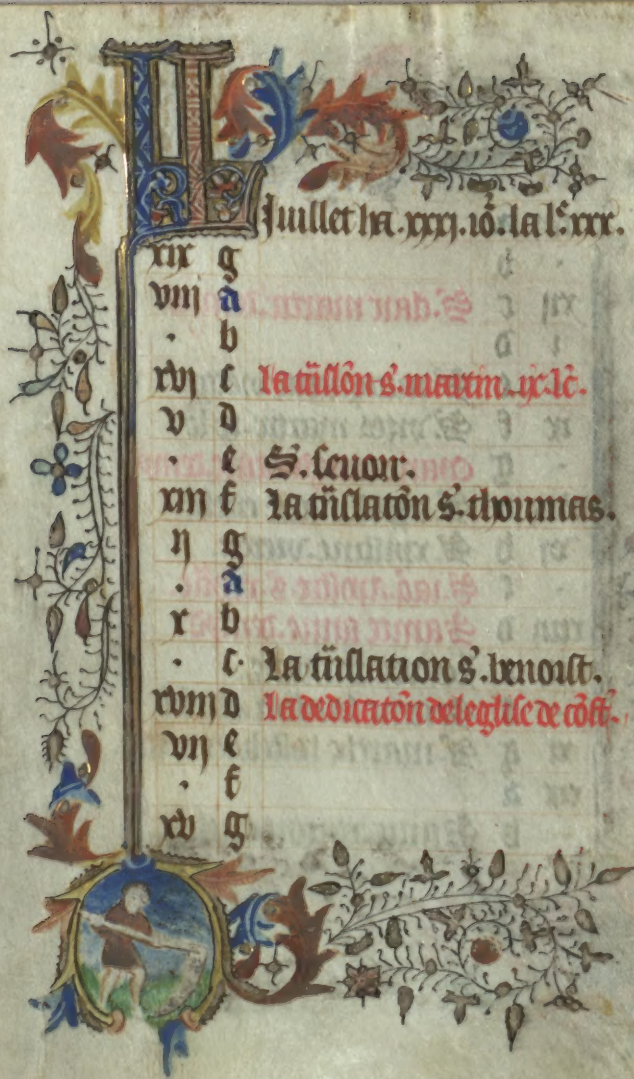 KL Juillet ha .xxxj. io᷑. la lᵉ. xxx.
xix g
viij a
. b
xvj c la tñslõn s. martin .ix. lc̃.
v d
. e S. sevoir.
xiij f La tñslatõn s. thoumas.
ij g
. a
x b
. c La tñslation s. benoist.
xviij d la dedicatõn deleglise de cõst.
vij e
. f
xv g